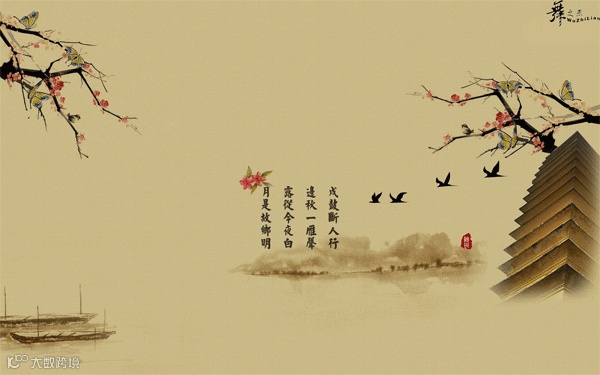 舞之恋
WuZhiLian
戍鼓斷人行
邊秋一雁聲
露從今夜白
月是故鄉明
大数跨境